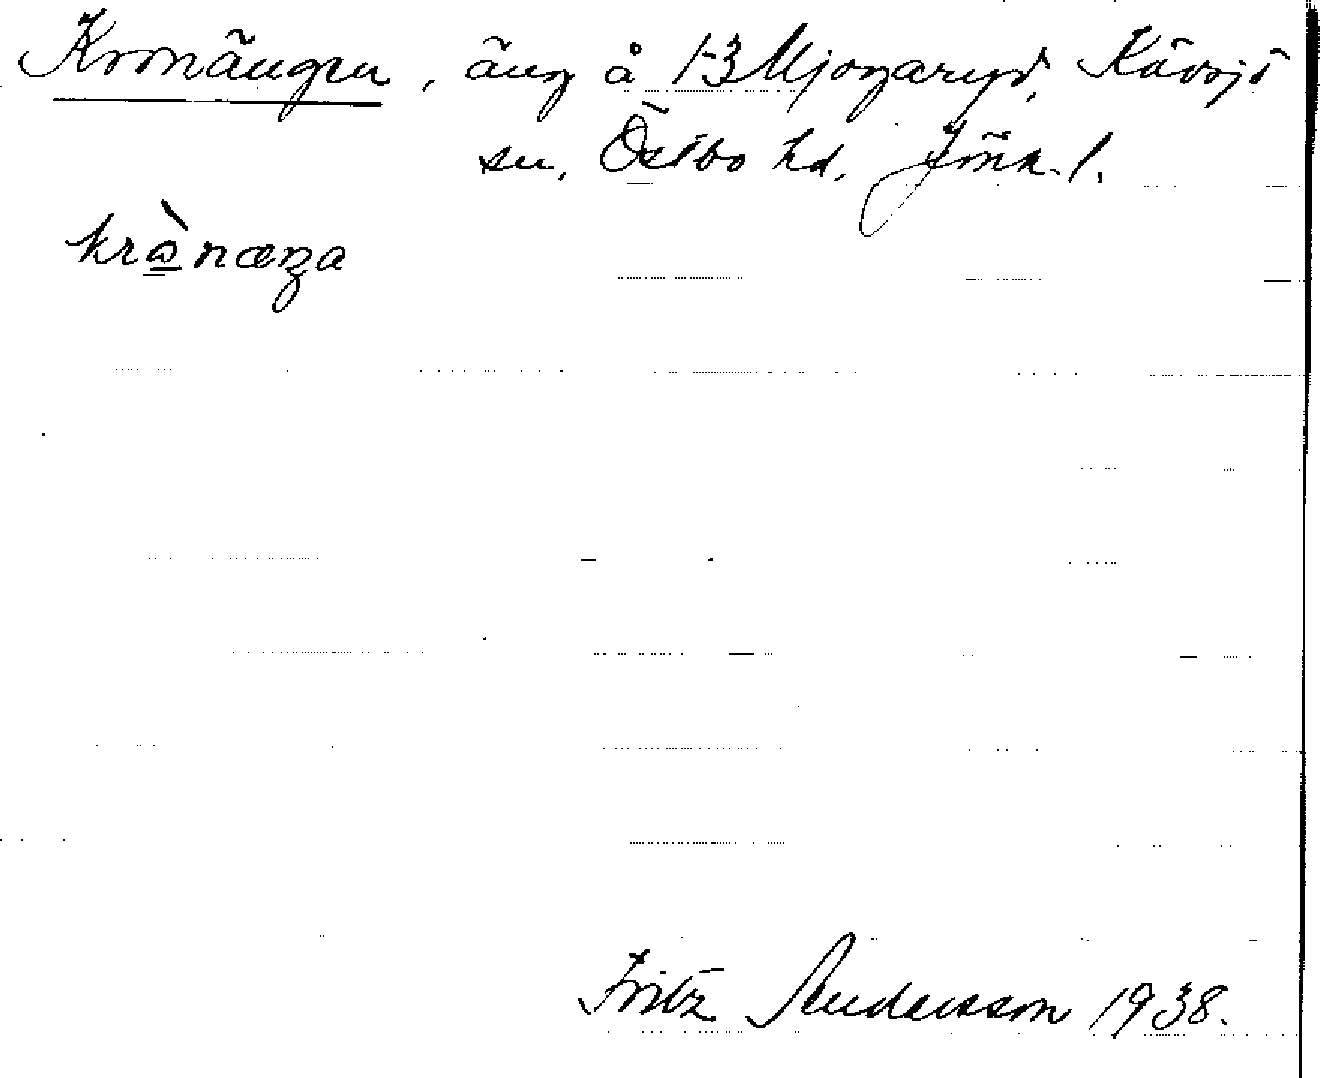 Kronängen, äng å 1-3 Mjogaryd, Kävsjö
sn, Östbo hd, Jönk. l.
krò̱nænga
Fritz Andersson 1938.